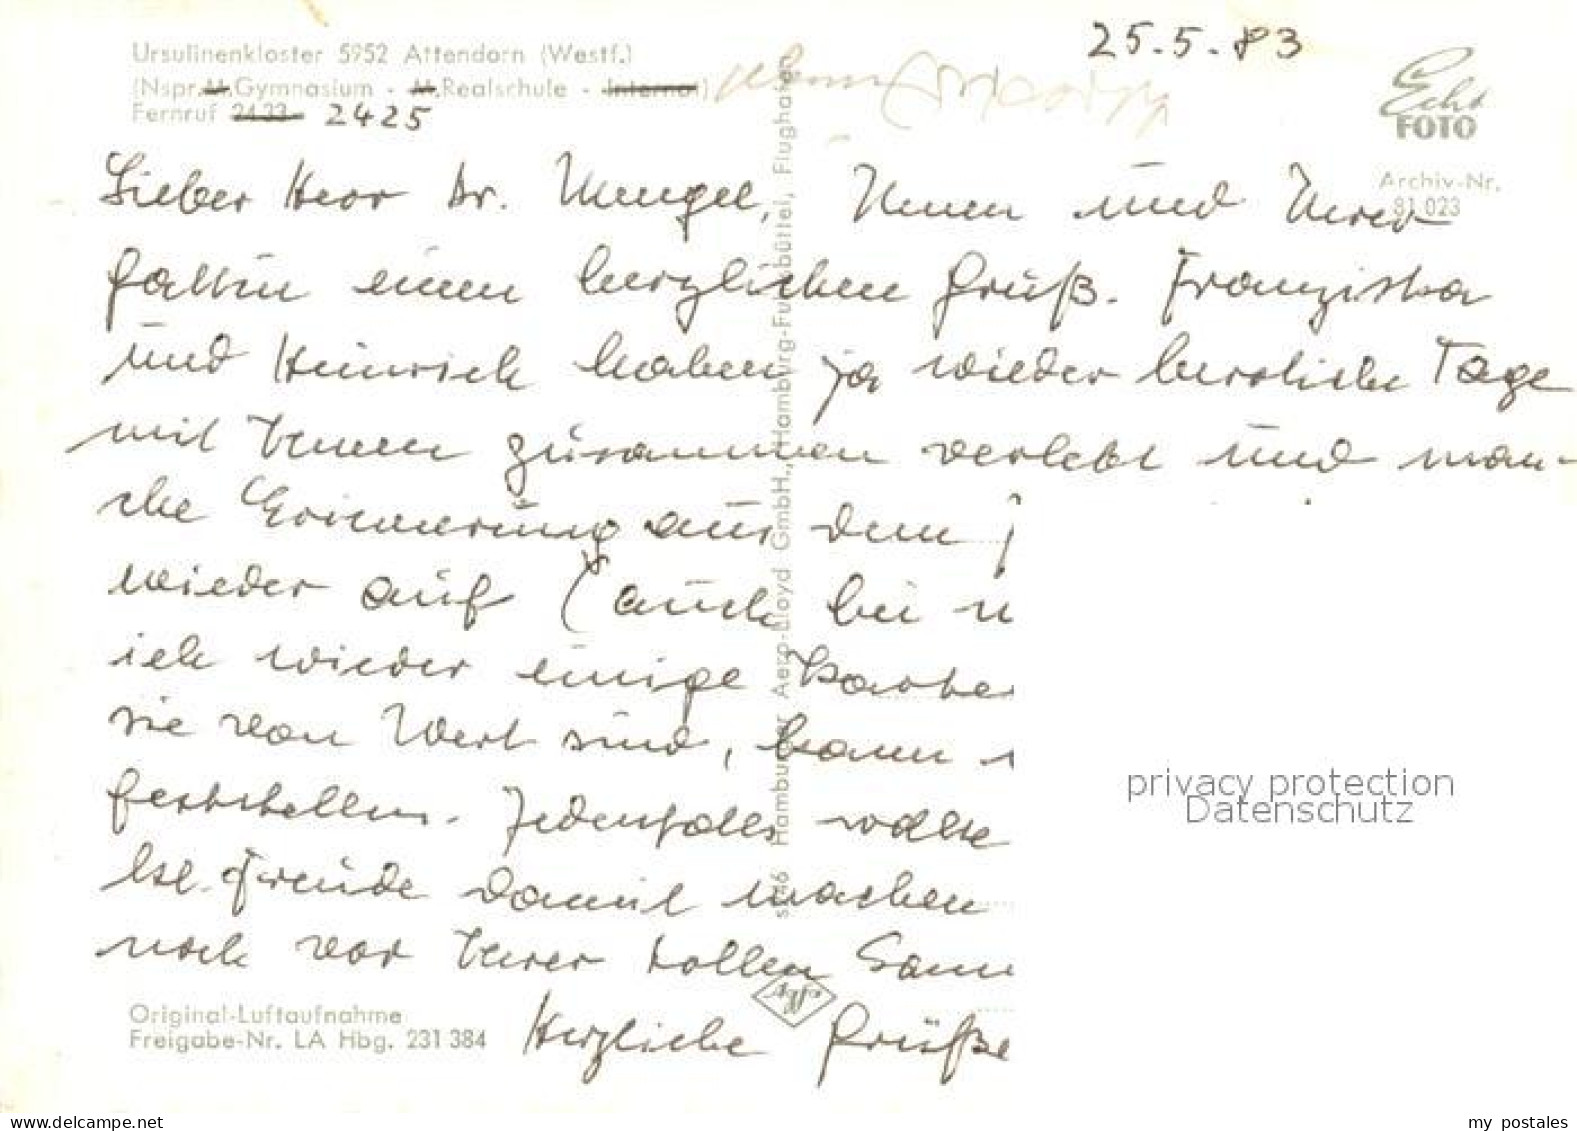 25.5.83
Ursulinenkloster 5952 Attendorn (Westf.)
(Nspr.M.Gymnasium - M.Realschule - Internat)
Fernruf 2433 2425
Echt
FOTO
Archiv-Nr.
81 023
Lieber Herr Dr. Mengel, Ihnen und Ihrer
Gattin einen herzlichen Gruß. Franziska
und Heinrich haben ja wieder herrliche Tage
mit Ihnen zusammen verlebt und man-
che Erinnerung aus dem J
wieder auf (auch bei u
ich wieder einige Karte
sie von Wert sind, kann
feststellen. Jedenfalls wollte
Freude damit machen
noch vor Ihrer tollen Samm
Herzliche Grüße
s 846 Hamburger Aero-Lloyd GmbH., Hamburg-Fuhlsbüttel, Flughafen
Agfa
Original-Luftaufnahme
Freigabe-Nr. LA Hbg. 231 384
privacy protection
Datenschutz
my postales
www.delcampe.net